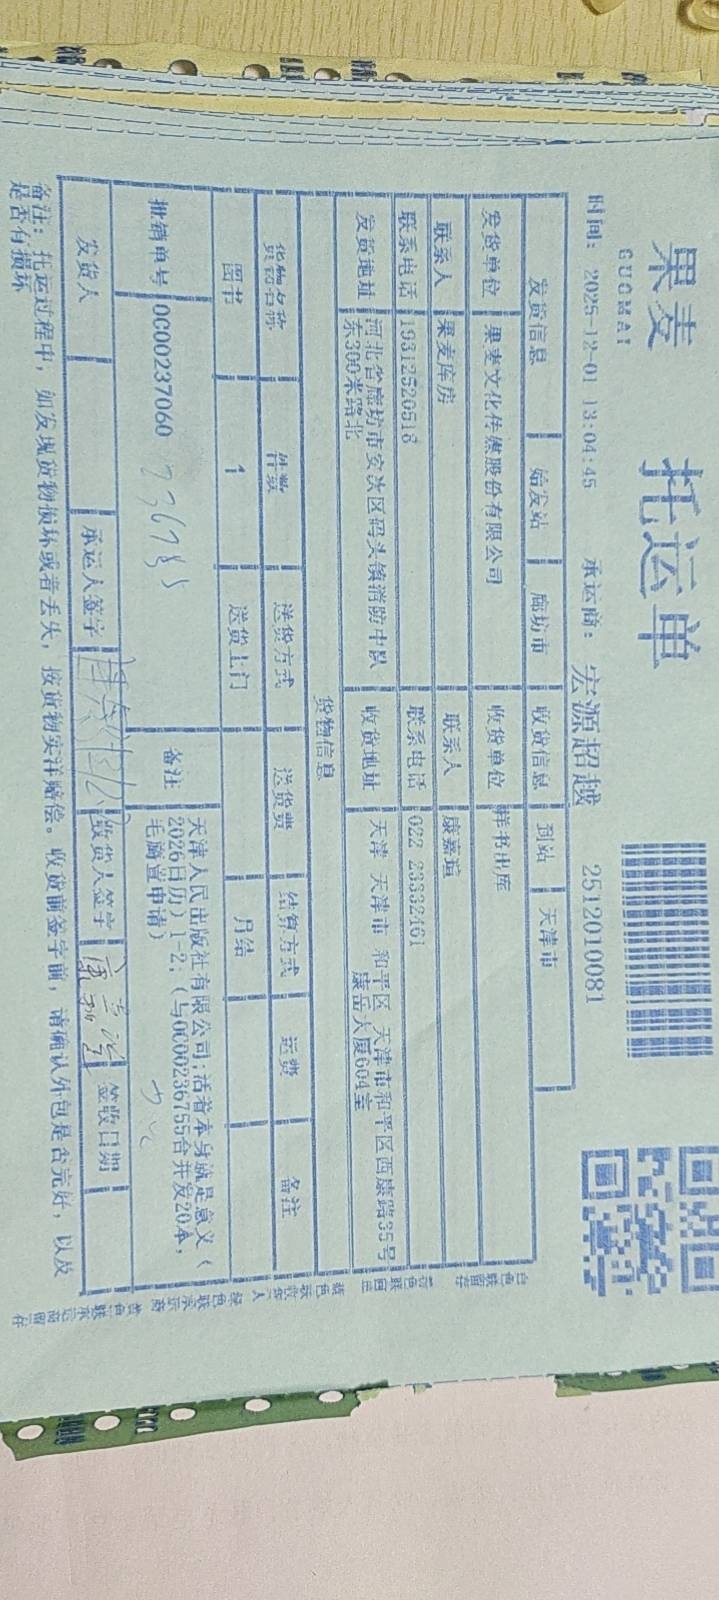 果麦
GUOMAI
托运单
时间: 2025-12-01 13:04:45 承运商: 宏源超越 2512010081
发货信息 始发站 廊坊市 收货信息 到站 天津市
发货单位 果麦文化传媒股份有限公司 收货单位 样书出库
联系人 果麦库房 联系人 康嘉瑄
联系电话 19312520518 联系电话 022 23332461
发货地址 河北省廊坊市安次区码头镇消防中队东300米路北 收货地址 天津 天津市 和平区 天津市和平区西康路35号康岳大厦604室
货物信息
货物名称 件数 送货方式 送货费 结算方式 运费 备注
图书 1 送货上门 月结
批销单号 OC00237060 236755 备注 天津人民出版社有限公司;活着本身就是意义(
2026日历) 1-2; (与OC00236755合并发20本,
毛 申请)
发货人 承运人签字 收货人签字 签收日期
备注: 托运过程中, 如发现货物损坏或者丢失, 按货物实洋赔偿。收货前签字前, 请确认外包是否完好, 以及
是否有损坏
白色联留存